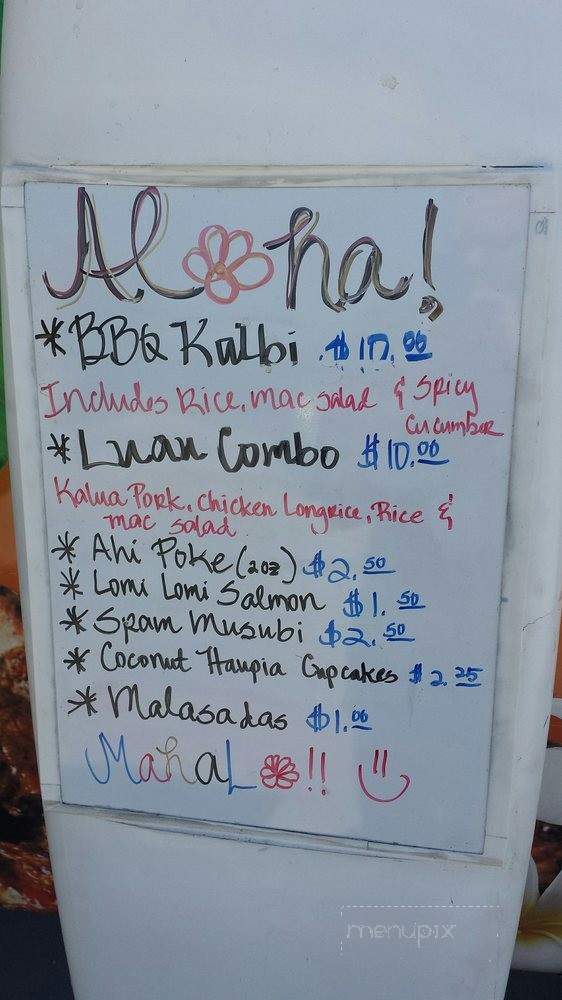 Aloha!
* BBQ Kalbi $10.00
Includes Rice, mac salad & Spicy
Cucumber
* Luau Combo $10.00
Kalua Pork, Chicken Longrice, Rice &
mac salad
* Ahi Poke (2oz) $2.50
* Lomi Lomi Salmon $1.50
* Spam Musubi $2.50
* Coconut Haupia Cupcakes $2.25
* Malasadas $1.00
Mahalo!!
menupix